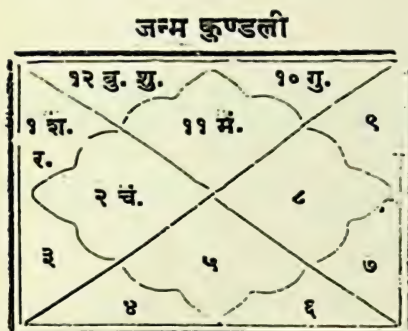 जन्म कुण्डली
१२ बु. शु.
१० गु.
१ श.
र.
११ मं.
९
२ चं.
८
३
५
७
४
६